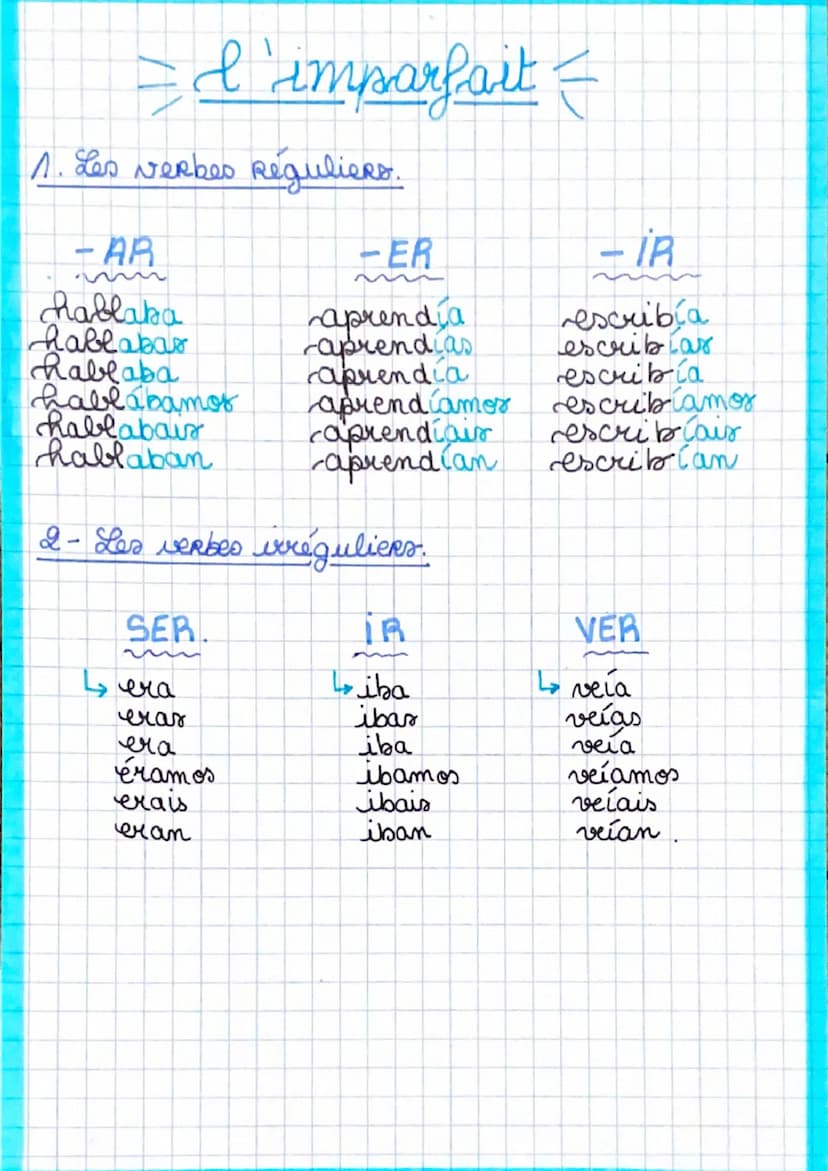 l'imparfait
1. Les verbes réguliers.
-AR -ER -IR
hablaba aprendía escribía
hablabas aprendías escribías
hablaba aprendía escribía
hablábamos aprendíamos escribíamos
hablabais aprendíais escribíais
hablaban aprendían escribían
2- Les verbes irréguliers.
SER. IR VER
↳ era ↳ iba ↳ veía
eras ibas veías
era iba veía
éramos ibamos veíamos
erais ibais veíais
eran iban veían.